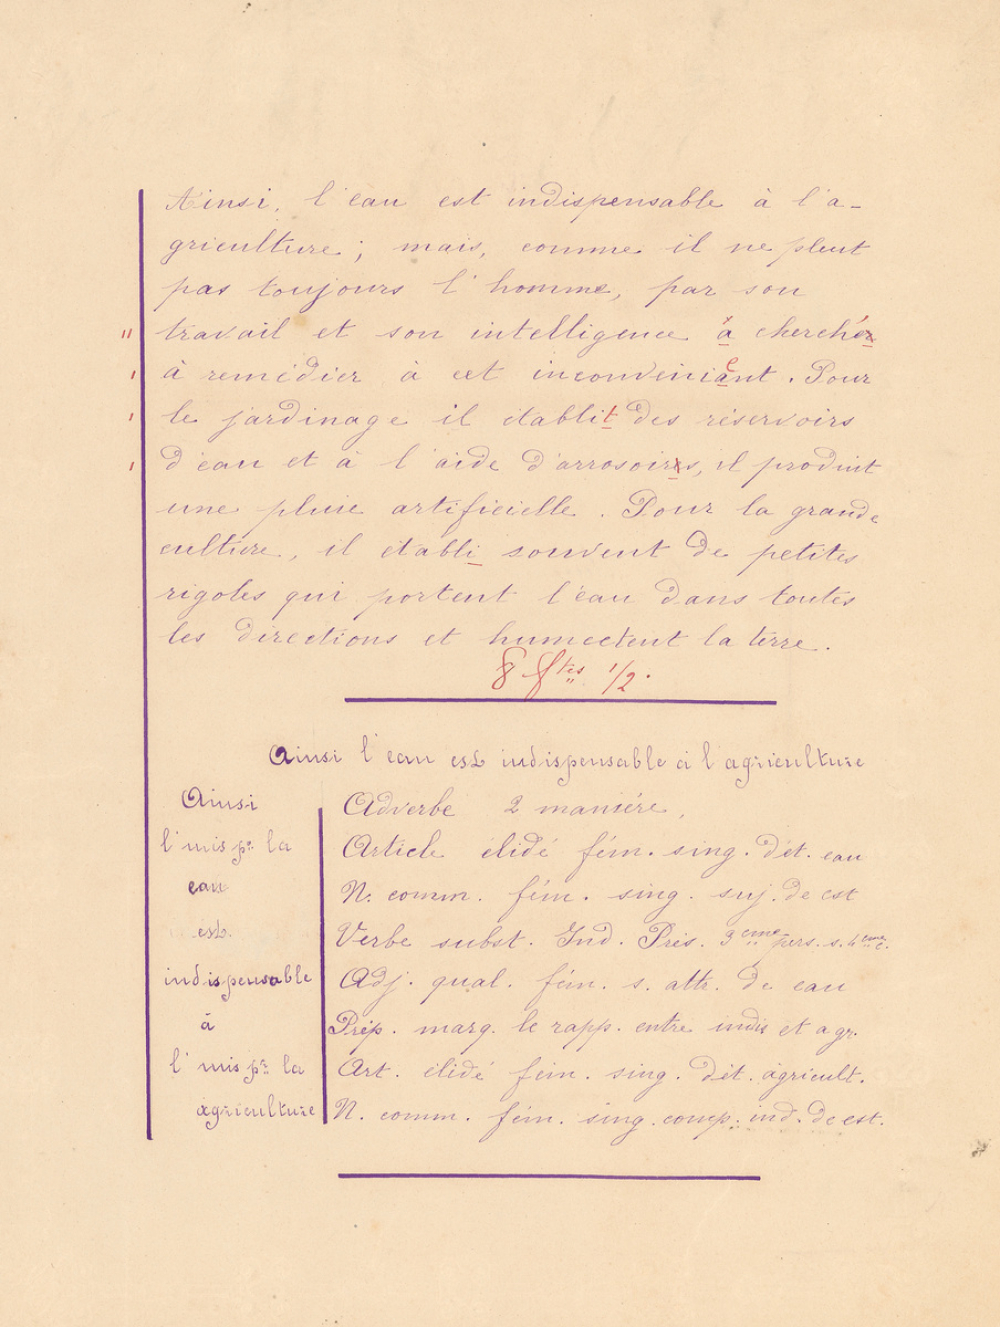 Ainsi, l'eau est indispensable à l'a-
griculture ; mais, comme il ne pleut
pas toujours l'homme, par son
" travail et son intelligence a cherchér
ı à remédier à cet inconveniant. Pour
ı le jardinage il établit des réservoirs
ı d'eau et à l'aide d'arrosoires, il produit
une pluie artificielle. Pour la grande
culture, il établi souvent de petites
rigoles qui portent l'eau dans toutes
les directions et humectent la terre.
8 ftes 1/2.
Ainsi l'eau est indispensable à l'agriculture
Ainsi Adverbe 2 manière,
l' mis pr la Article élidé fém. sing. dét. eau
eau N. comm. fém. sing. suj. de est
est Verbe subst. Ind. Prés. 3eme pers. s. 4eme c.
indispensable Adj. qual. fém. s. attr. de eau
à Prép. marq. le rapp. entre indis et agr.
l' mis pr la Art. élidé fém. sing. dét. agricult.
agriculture N. comm. fém. sing. comp. ind. de est.